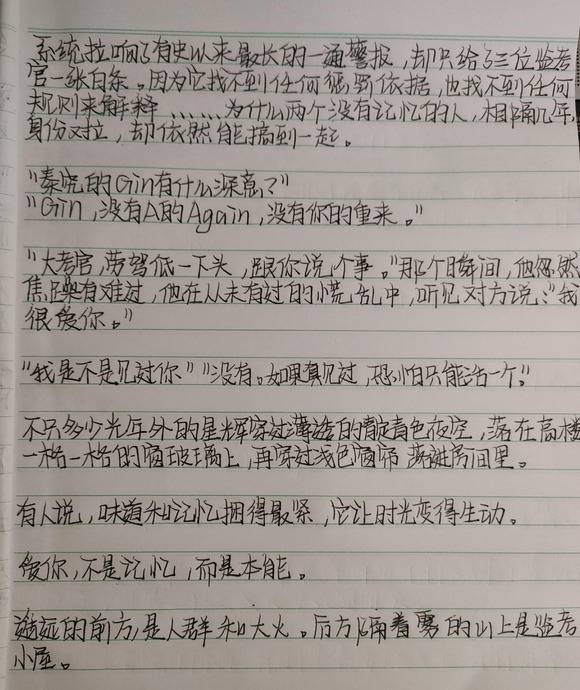 系统拉响了有史以来最长的一通警报，却只给了三位监考
官一张白条。因为它找不到任何惩罚依据，也找不到任何
规则来解释……为什么两个没有记忆的人，相隔几年，
身份对拉，却依然能搞到一起。
"秦究的Gin有什么深意？"
"Gin，没有A的Again，没有你的重来。"
"大考官，劳驾低一下头，跟你说个事。"那个瞬间，他忽然
焦躁有难过，他在从未有过的慌乱中，听见对方说："我
很爱你。"
"我是不是见过你""没有。如果真见过，恐怕只能活一个。"
不只多少光年外的星辉穿过薄透的靛青色夜空，落在高楼
一格一格的窗玻璃上，再穿过浅色窗帘 房间里。
有人说，味道和记忆捆得最紧，它让时光变得生动。
爱你，不是记忆，而是本能。
遥远的前方，是人群和大火。后方隔着雾的山上是监考
小屋。